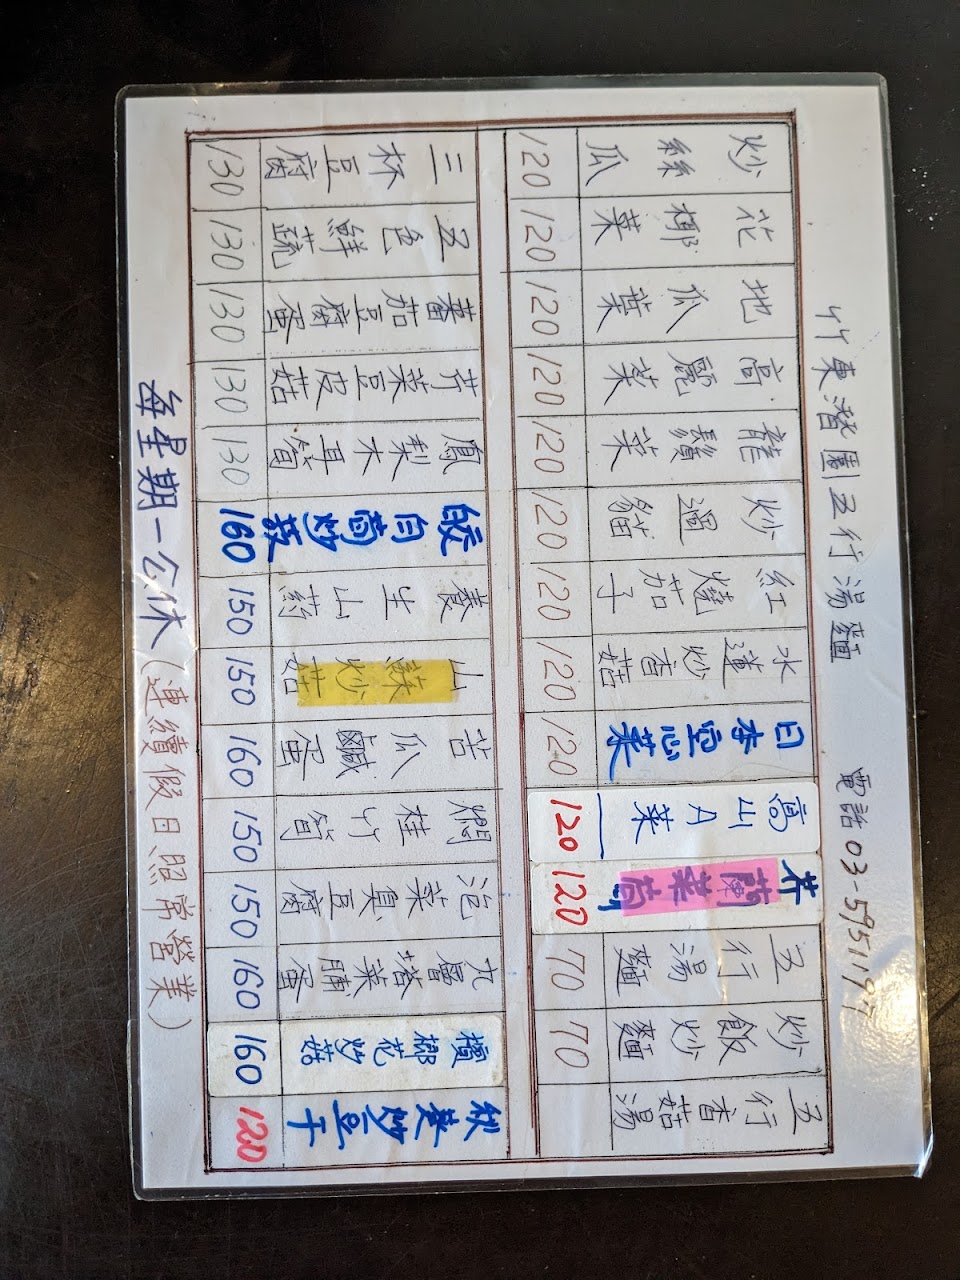 竹東潛園五行湯麵 電話
炒絲瓜 120
花椰菜 120
地瓜葉 120
高麗菜 120
龍鬚菜 120
炒過貓 120
紅燒茄子 120
水蓮炒香菇 120
日本空心菜 120
高山A菜 120
芥蘭菜 120
五行湯麵 70
炒飯炒麵 70
五行香菇湯
三杯豆腐 130
五色鮮蔬 130
蕃茄豆腐蛋 130
芹菜豆皮菇 130
鳳梨木耳筍 130
皎白筍炒 160
養生山葯 150
山蘇炒菇 150
苦瓜鹹蛋 160
燜桂竹筍 150
泡菜臭豆腐 150
九層塔菜脯蛋 160
檳榔花炒菇 160
秋葵炒豆干 120
每星期一公休(連續假日照常營業)